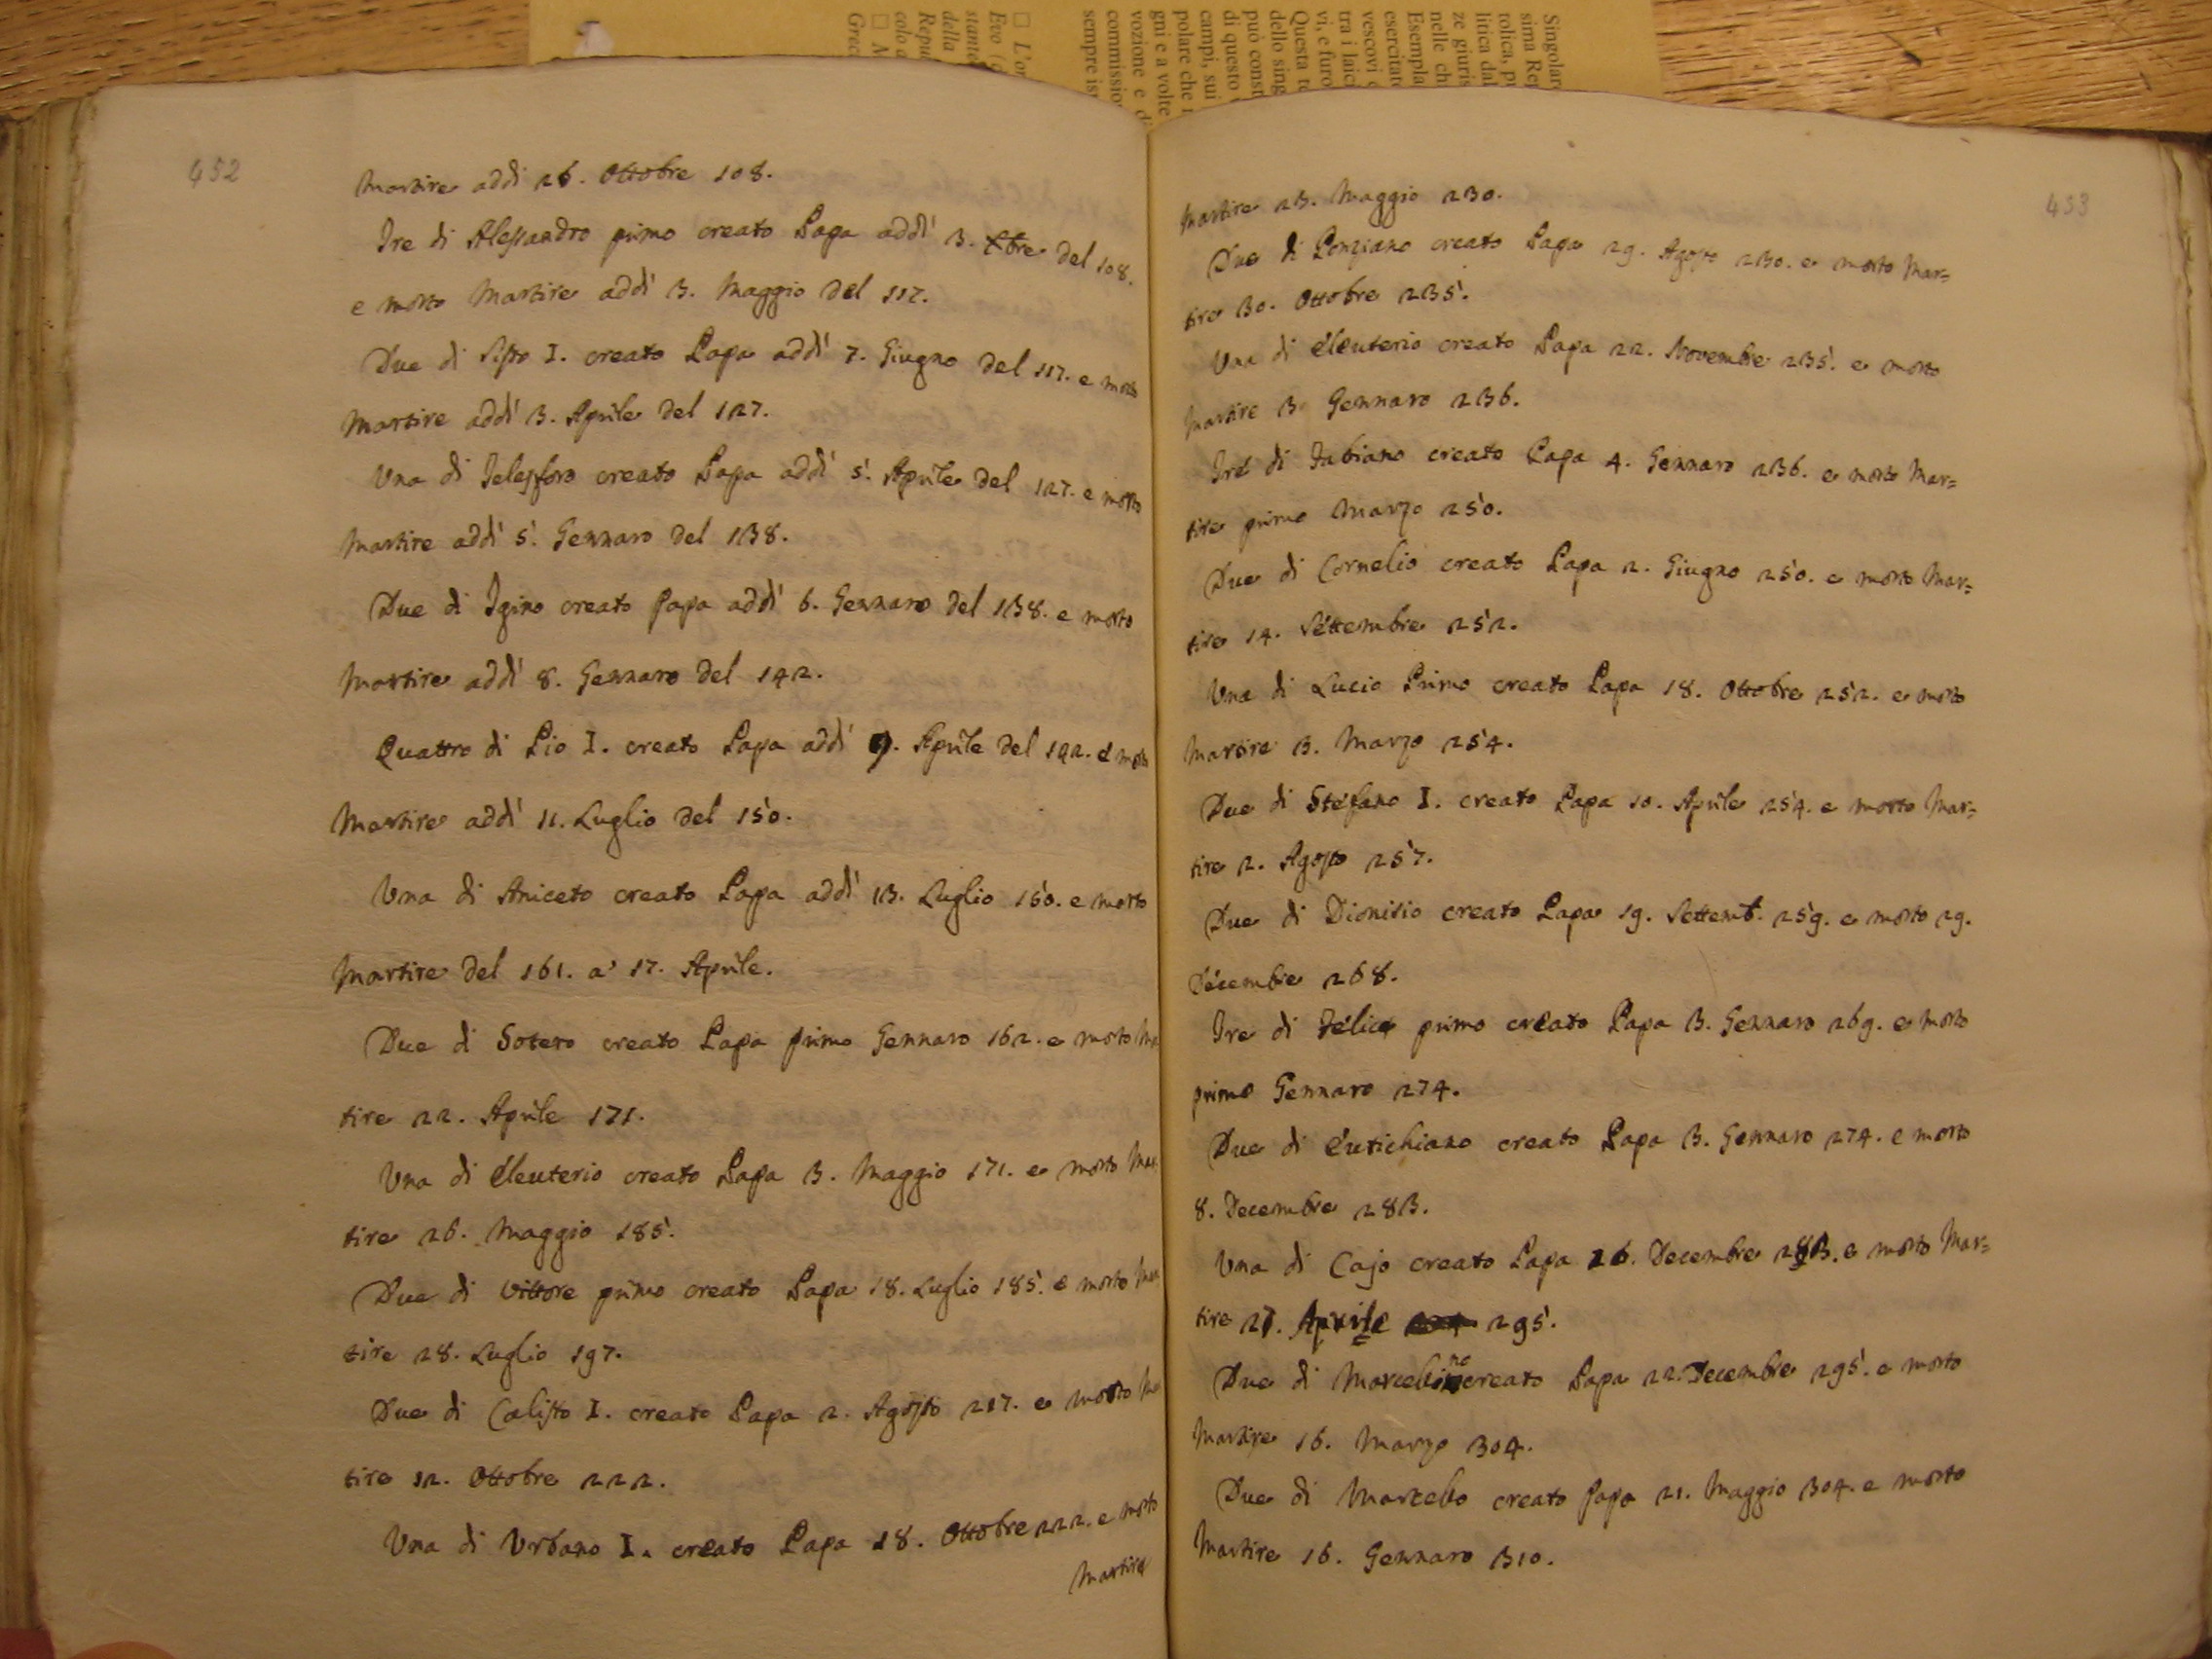 Singolare
sima Re
tolica, pu
litica dal
ze giuris
nelle ch
Esempla
esercitat
vescovi
tra i laici
vi, e furo
Questa te
dello sing
può const
di questo
campi, sui
polare che
gni e a volte
vozione e d
commissio
sempre is
□ L'o
Evo (
stante
della
Repu
colo
□ A
Grec
452
Martire addì 26. Ottobre 108.
Tre di Alessandro primo creato Papa addì 3. Xbre del 108.
e morto Martire addì 3. Maggio del 117.
Due di Sisto I. creato Papa addì 7. Giugno del 117. e morto
Martire addì 3. Aprile del 127.
Una di Telesforo creato Papa addì 5. Aprile del 127. e morto
Martire addì 5. Gennaro del 138.
Due di Igino creato Papa addì 6. Gennaro del 138. e morto
Martire addì 8. Gennaro del 142.
Quattro di Pio I. creato Papa addì 9. Aprile del 142. e morto
Martire addì 11. Luglio del 150.
Una di Aniceto creato Papa addì 13. Luglio 150. e morto
Martire del 161. a' 17. Aprile.
Due di Sotero creato Papa primo Gennaro 162. e morto Mar
tire 22. Aprile 171.
Una di Eleuterio creato Papa 3. Maggio 171. e morto Mar
tire 26. Maggio 185.
Due di Vittore primo creato Papa 18. Luglio 185. e morto Mar
tire 28. Luglio 197.
Due di Calisto I. creato Papa 2. Agosto 217. e morto Mar
tire 12. Ottobre 222.
Una di Urbano I. creato Papa 18. Ottobre 222. e morto
Martire
453
Martire 23. Maggio 230.
Due di Ponziano creato Papa 29. Agosto 230. e morto Mar=
tire 30. Ottobre 235.
Una di Eleuterio creato Papa 22. Novembre 235. e morto
Martire 3. Gennaro 236.
Tre di Fabiano creato Papa 4. Gennaro 236. e morto Mar=
tire primo Marzo 250.
Due di Cornelio creato Papa 2. Giugno 250. e morto Mar=
tire 14. Settembre 252.
Una di Lucio Primo creato Papa 18. Ottobre 252. e morto
Martire 3. Marzo 254.
Due di Stefano I. creato Papa 10. Aprile 254. e morto Mar=
tire 2. Agosto 257.
Due di Dionisio creato Papa 19. Settemb. 259. e morto 29.
Decembre 268.
Tre di Felice primo creato Papa 3. Gennaro 269. e morto
primo Gennaro 274.
Due di Eutichiano creato Papa 3. Gennaro 274. e morto
8. Decembre 283.
Una di Cajo creato Papa 16. Decembre 283. e morto Mar=
tire 21. Aprile 295.
Due di Marcellino creato Papa 22. Decembre 295. e morto
Martire 16. Marzo 304.
Due di Marcello creato Papa 21. Maggio 304. e morto
Martire 16. Gennaro 310.